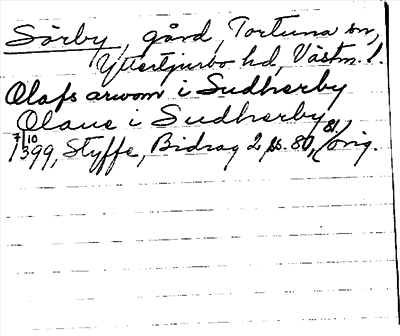 Sörby, gård, Tortuna sn,
Yttertjurbo hd, Västm. l.
Olafs arwom i Sudherby
Olaue i Sudherby,
7/10 1399, Styffe, Bidrag 2, s. 80, 81, orig.